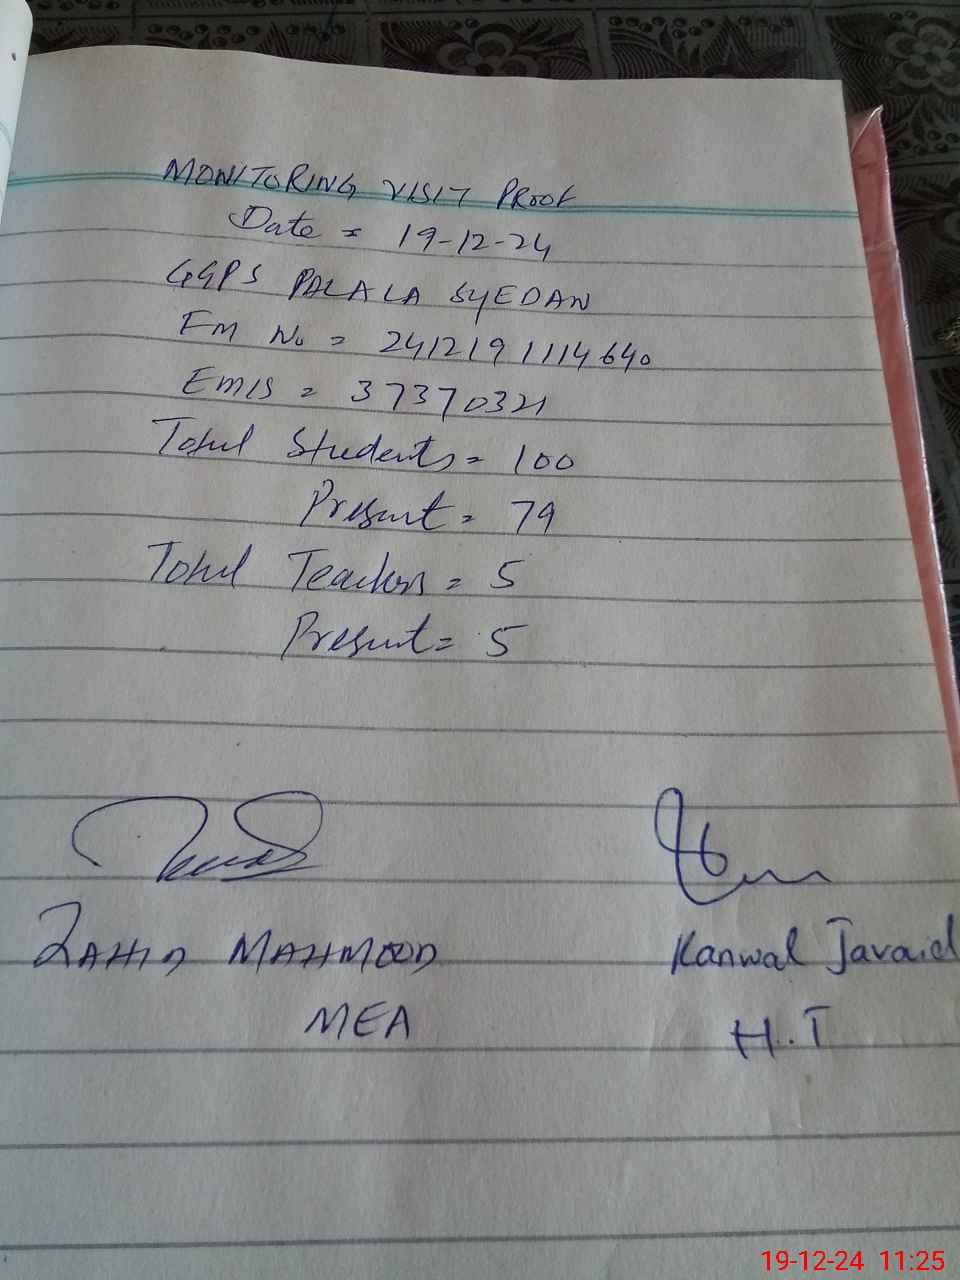 MONITORING VISIT PROOF
Date = 19-12-24
GGPS PALALA SYEDAN
FM No = 2412191114640
EMIS = 37370321
Total Students = 100
Present = 79
Total Teachers = 5
Present = 5
ZAHID MAHMOOD
Kanwal Javaid
MEA
H.T
19-12-24 11:25